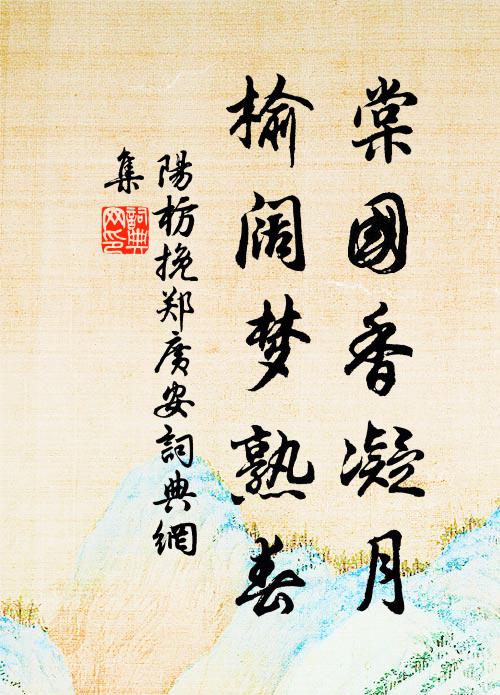 棠國香凝月
榆阔梦熟春
陽枋挽郑廣安詞典網
集
詞典网印